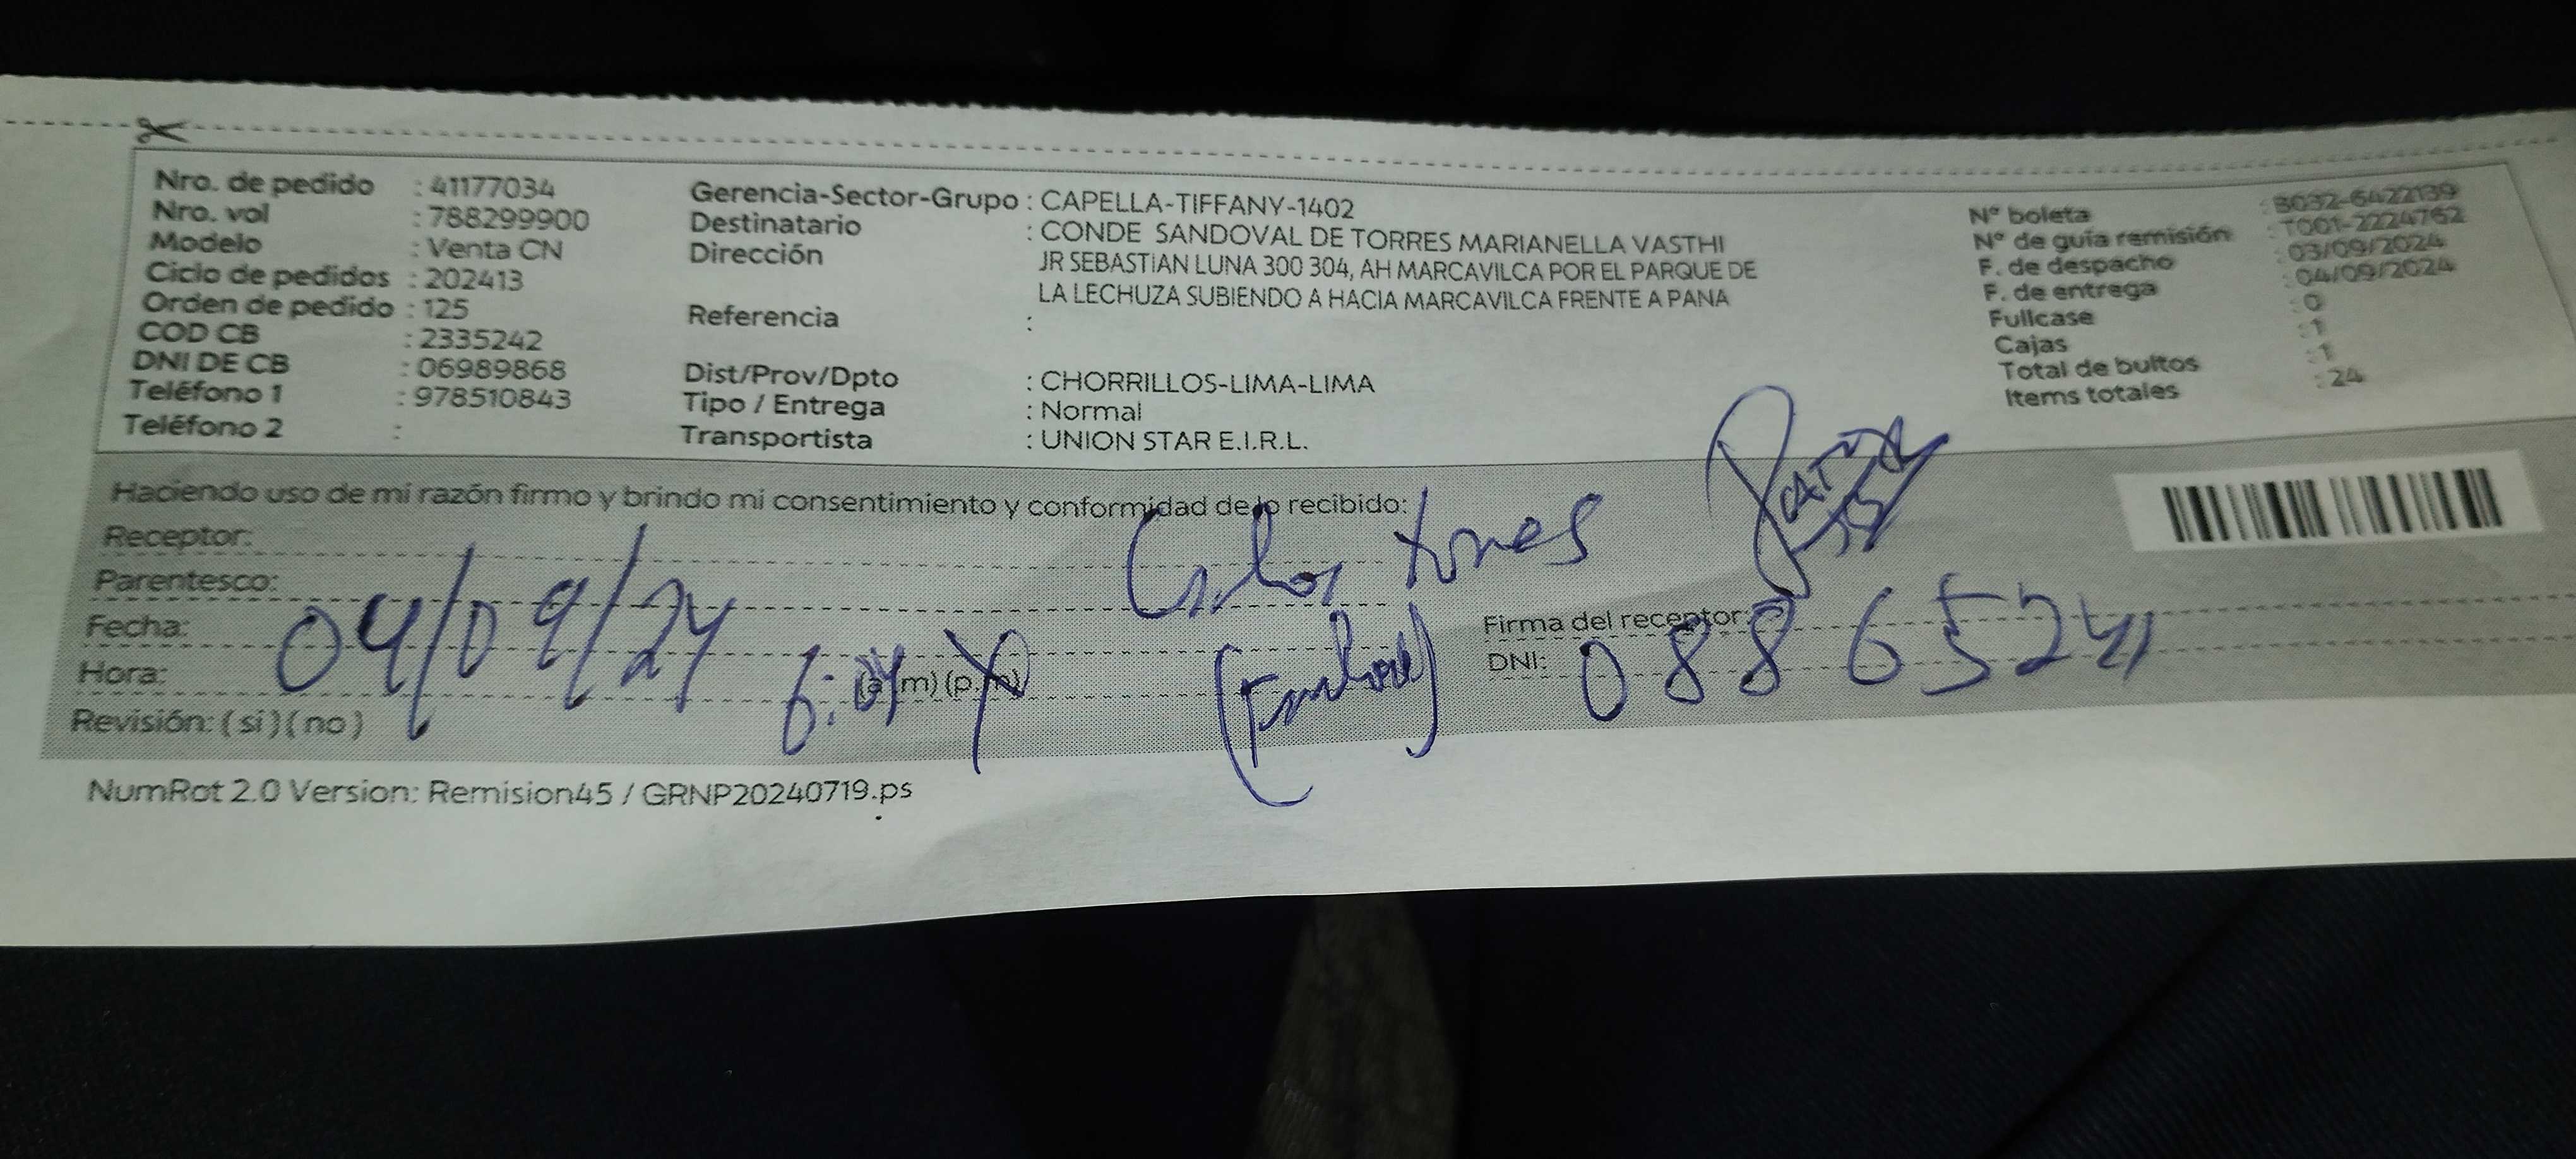 Nro. de pedido : 41177034
Nro. vol : 788299900
Modelo : Venta CN
Ciclo de pedidos : 202413
Orden de pedido : 125
COD CB : 2335242
DNI DE CB : 06989868
Teléfono 1 : 978510843
Teléfono 2 :
Gerencia-Sector-Grupo : CAPELLA-TIFFANY-1402
Destinatario : CONDE SANDOVAL DE TORRES MARIANELLA VASTHI
Dirección JR SEBASTIAN LUNA 300 304, AH MARCAVILCA POR EL PARQUE DE
LA LECHUZA SUBIENDO A HACIA MARCAVILCA FRENTE A PANA
Referencia :
Dist/Prov/Dpto : CHORRILLOS-LIMA-LIMA
Tipo / Entrega : Normal
Transportista : UNION STAR E.I.R.L.
N° boleta : B032-6422139
N° de guía remisión : T001-2224762
F. de despacho : 03/09/2024
F. de entrega : 04/09/2024
Fullcase : 0
Cajas : 1
Total de bultos : 1
Items totales : 24
Haciendo uso de mi razón firmo y brindo mi consentimiento y conformidad de lo recibido:
Receptor: Carlos torres
Parentesco:
Fecha: 04/09/24
Hora: (a.m) (p.m)
Revisión: ( si ) ( no )
Firma del receptor:
DNI:
NumRot 2.0 Version: Remision45 / GRNP20240719.ps